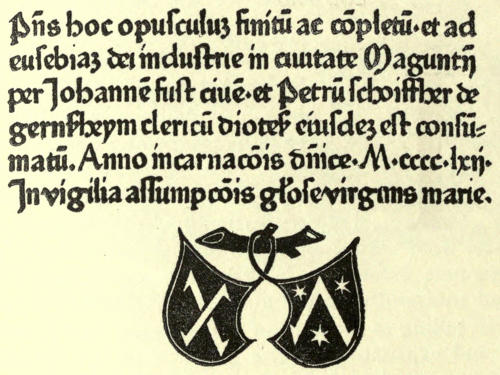 Pñs hoc opusculuʒ finitū ac cōpletū. et ad
eusebiaʒ dei industrie in ciuitate Maguntij
per Johannē fust ciuē. et Petrū schoiffher de
gernsheym clericū diotes eiusdeʒ est consū-
matū. Anno incarnacōis dñice. M.cccc.lxij.
In vigilia assumpcōis gl'ose virginis marie.